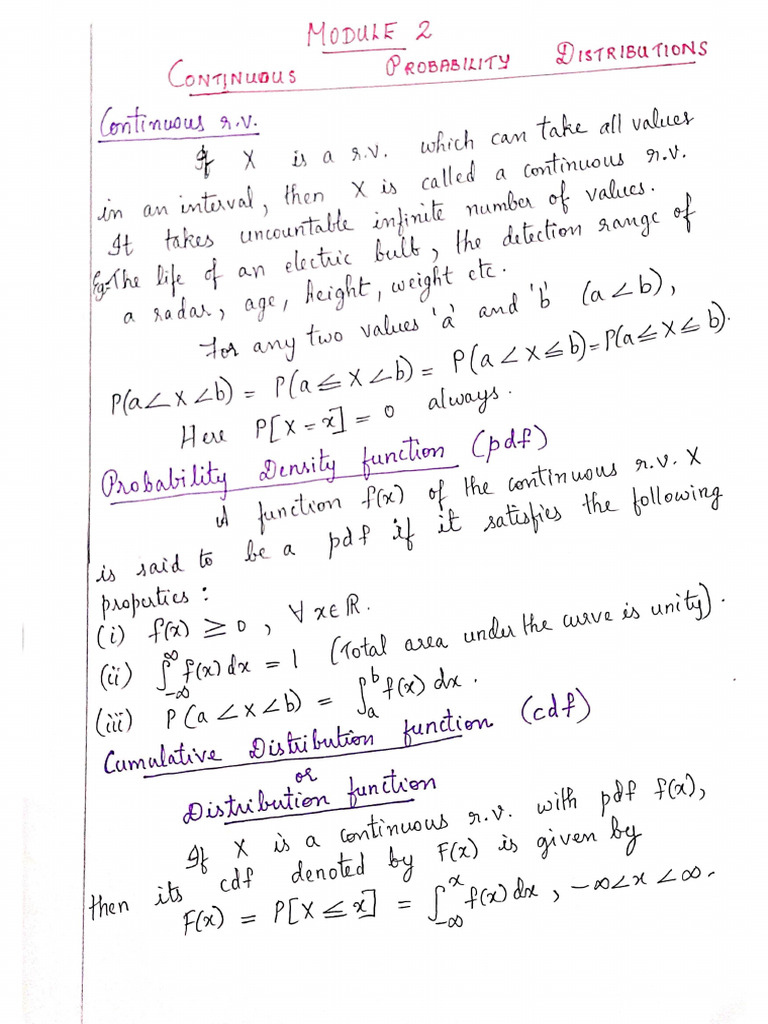 MODULE 2
CONTINUOUS PROBABILITY DISTRIBUTIONS
Continuous r.v.
If X is a r.v. which can take all values
in an interval, then X is called a continuous r.v.
It takes uncountable infinite number of values.
Eg:- The life of an electric bulb, the detection range of
a radar, age, height, weight etc.
For any two values 'a' and 'b' (a<b),
P(a<X<b) = P(a≤X<b) = P(a<X≤b) = P(a≤X≤b).
Here P[X=x] = 0 always.
Probability Density function (pdf)
A function f(x) of the continuous r.v. X
is said to be a pdf if it satisfies the following
properties:
(i) f(x) ≥ 0, ∀ x∈R.
(ii) ∫_{-∞}^{∞} f(x) dx = 1 (Total area under the curve is unity).
(iii) P(a<X<b) = ∫_a^b f(x) dx.
Cumulative Distribution function (cdf)
or
Distribution function
If X is a continuous r.v. with pdf f(x),
then its cdf denoted by F(x) is given by
F(x) = P[X≤x] = ∫_{-∞}^{x} f(x) dx, -∞<x<∞.